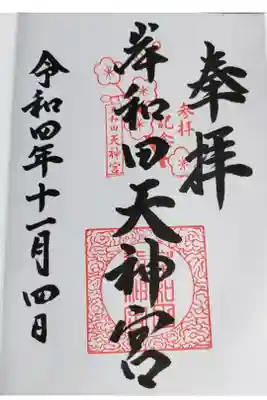 奉拝
参拝
記念
岸和田天神宮
岸和田天神宮
令和四年十一月四日